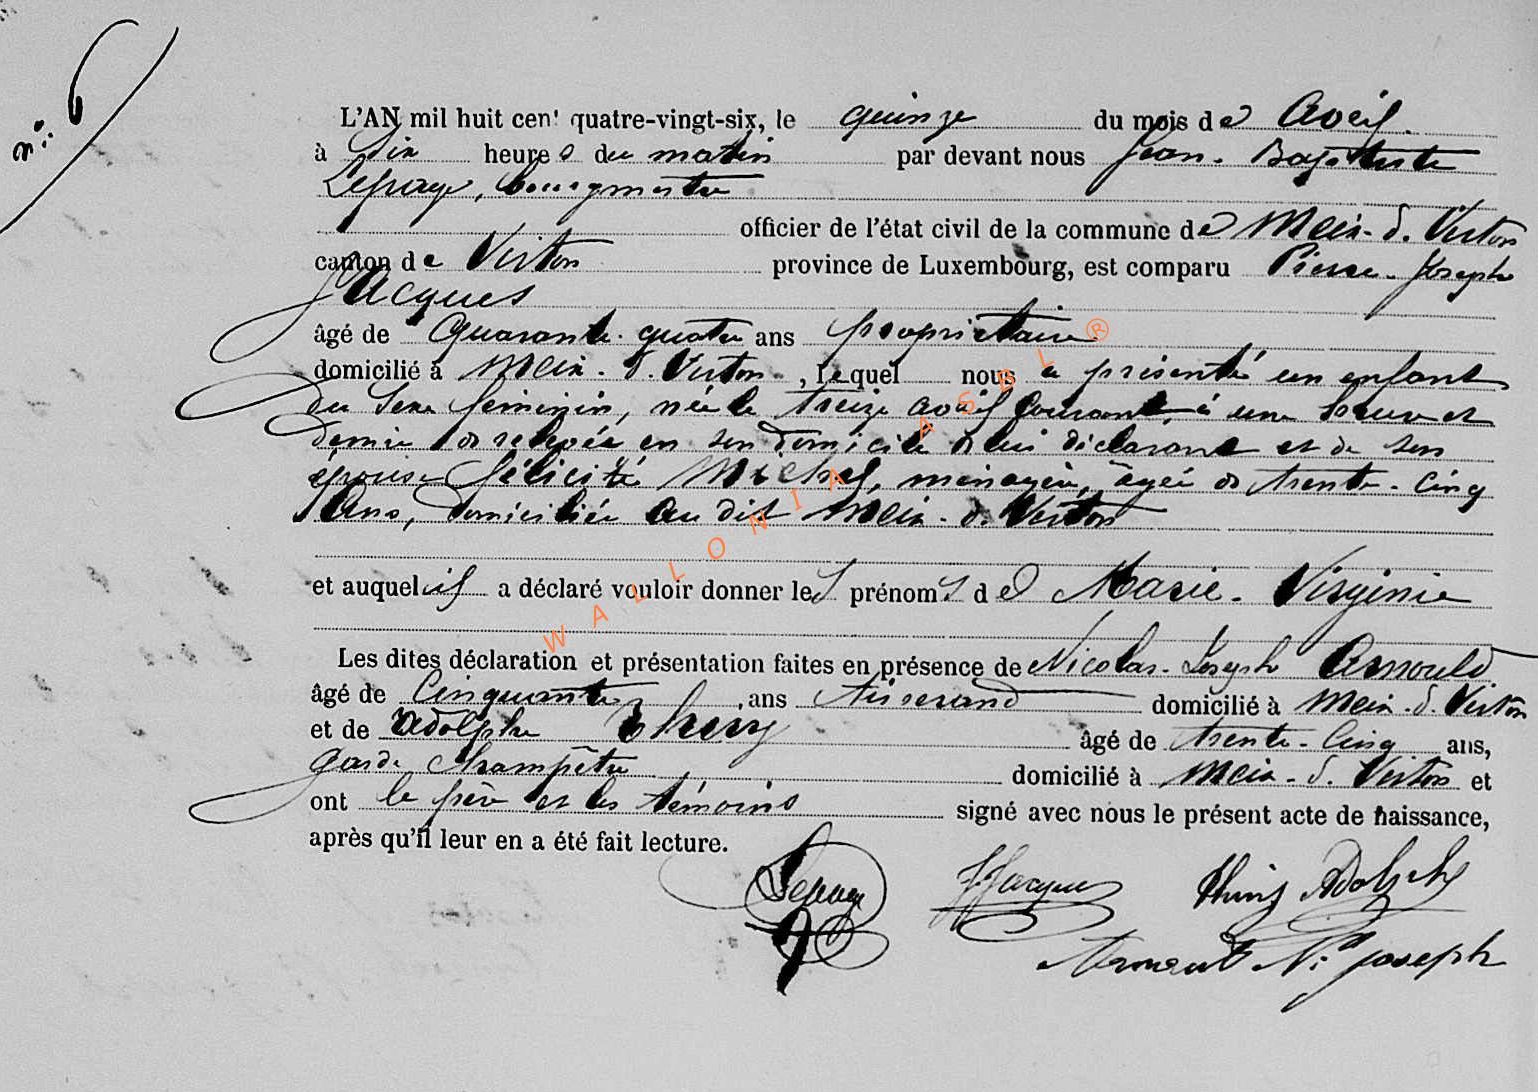 n°. 6
L'AN mil huit cent quatre-vingt-six, le quinze du mois de Avril.
à six heures du matin par devant nous Jean-Baptiste
Lepage, bourgmestre
officier de l'état civil de la commune de Meix-d. Virton
canton de Virton province de Luxembourg, est comparu Pierre-Joseph
Jacques
âgé de Quarante-quatre ans propriétaire
domicilié à Meix-d. Virton, lequel nous a présenté un enfant
du sexe féminin, née le treize avril courant, à une heure et
demie de relevée en son domicile de lui déclarant et de son
épouse Félicité Michel, ménagère, âgée de trente-cinq
Ans, domiciliée au dit Meix-d. Virton
et auquel il a déclaré vouloir donner les prénoms de Marie-Virginie
Les dites déclaration et présentation faites en présence de Nicolas-Joseph Arnould
âgé de Cinquante ans tisserand domicilié à Meix-d. Virton
et de Adolphe Thiry âgé de trente-cinq ans,
garde champêtre domicilié à Meix-d. Virton et
ont le père et les témoins signé avec nous le présent acte de naissance,
après qu'il leur en a été fait lecture.
Lepage J. Jacques Thiry Adolphe
N. Joseph
WALLONIA ASBL ®